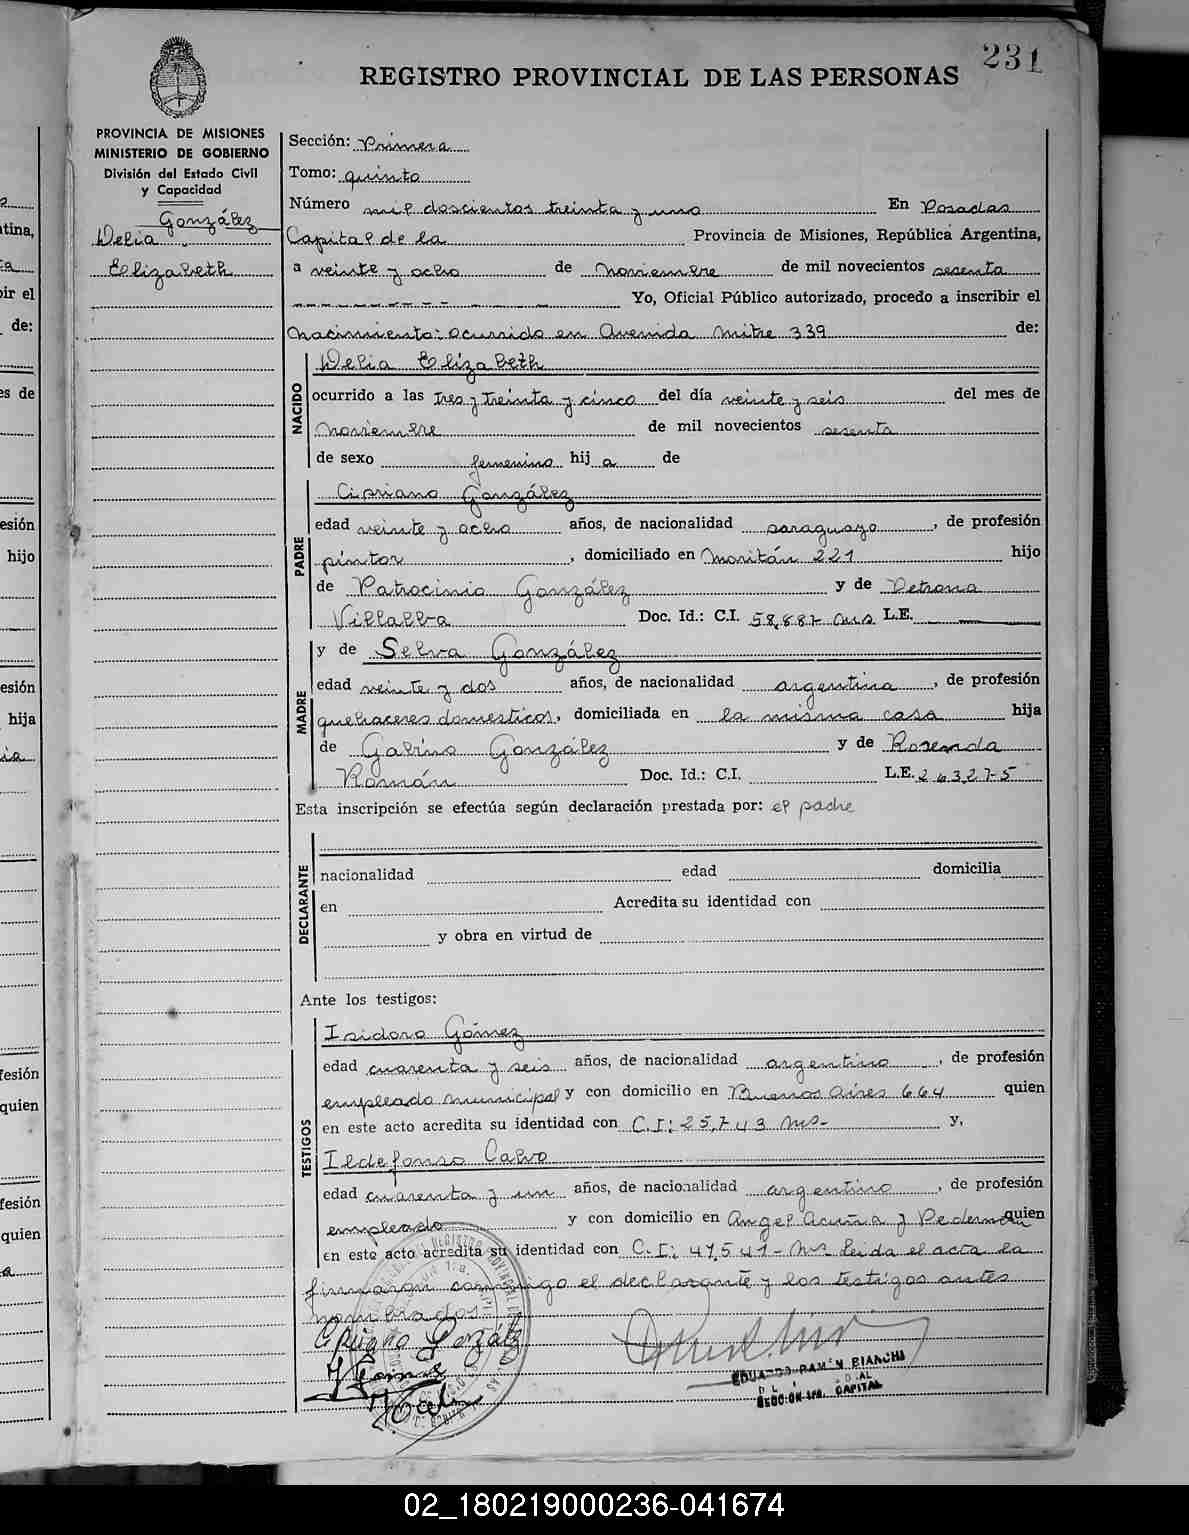 231
REGISTRO PROVINCIAL DE LAS PERSONAS
PROVINCIA DE MISIONES
MINISTERIO DE GOBIERNO
División del Estado Civil
y Capacidad
González
Delia
Elizabeth
Sección: Primera
Tomo: quinto
Número mil doscientos treinta y uno En Posadas
Capital de la Provincia de Misiones, República Argentina,
a veinte y ocho de noviembre de mil novecientos sesenta
Yo, Oficial Público autorizado, procedo a inscribir el
nacimiento: ocurrido en Avenida Mitre 339 de:
NACIDO
Delia Elizabeth
ocurrido a las tres y treinta y cinco del día veinte y seis del mes de
noviembre de mil novecientos sesenta
de sexo femenino hij a de
PADRE
Cipriano González
edad veinte y ocho años, de nacionalidad paraguayo, de profesión
pintor, domiciliado en Moritán 221 hijo
de Patrocinio González y de Petrona
Villalba Doc. Id.: C.I. 58.887 Mns L.E.
MADRE
y de Selva González
edad veinte y dos años, de nacionalidad argentina, de profesión
quehaceres domesticos, domiciliada en la misma casa hija
de Gabino González y de Rosenda
Román Doc. Id.: C.I. L.E. 263275
Esta inscripción se efectúa según declaración prestada por: el padre
DECLARANTE
nacionalidad edad domicilia
en Acredita su identidad con
y obra en virtud de
Ante los testigos:
TESTIGOS
Isidoro Gómez
edad cuarenta y seis años, de nacionalidad argentino, de profesión
empleado municipal y con domicilio en Buenos Aires 664 quien
en este acto acredita su identidad con C.I: 25.743 Mns- y,
Ildefonso Calvo
edad cuarenta y un años, de nacionalidad argentino, de profesión
empleado y con domicilio en Angel Acuña y Pedernera quien
en este acto acredita su identidad con C.I: 47.541- Mns leida el acta la
firmaron conmigo el declarante y los testigos antes
nombrados
Cipriano González
I Gómez
EDUARDO RAMÓN BIANCHI
SECCION 1ra. CAPITAL
02_180219000236-041674